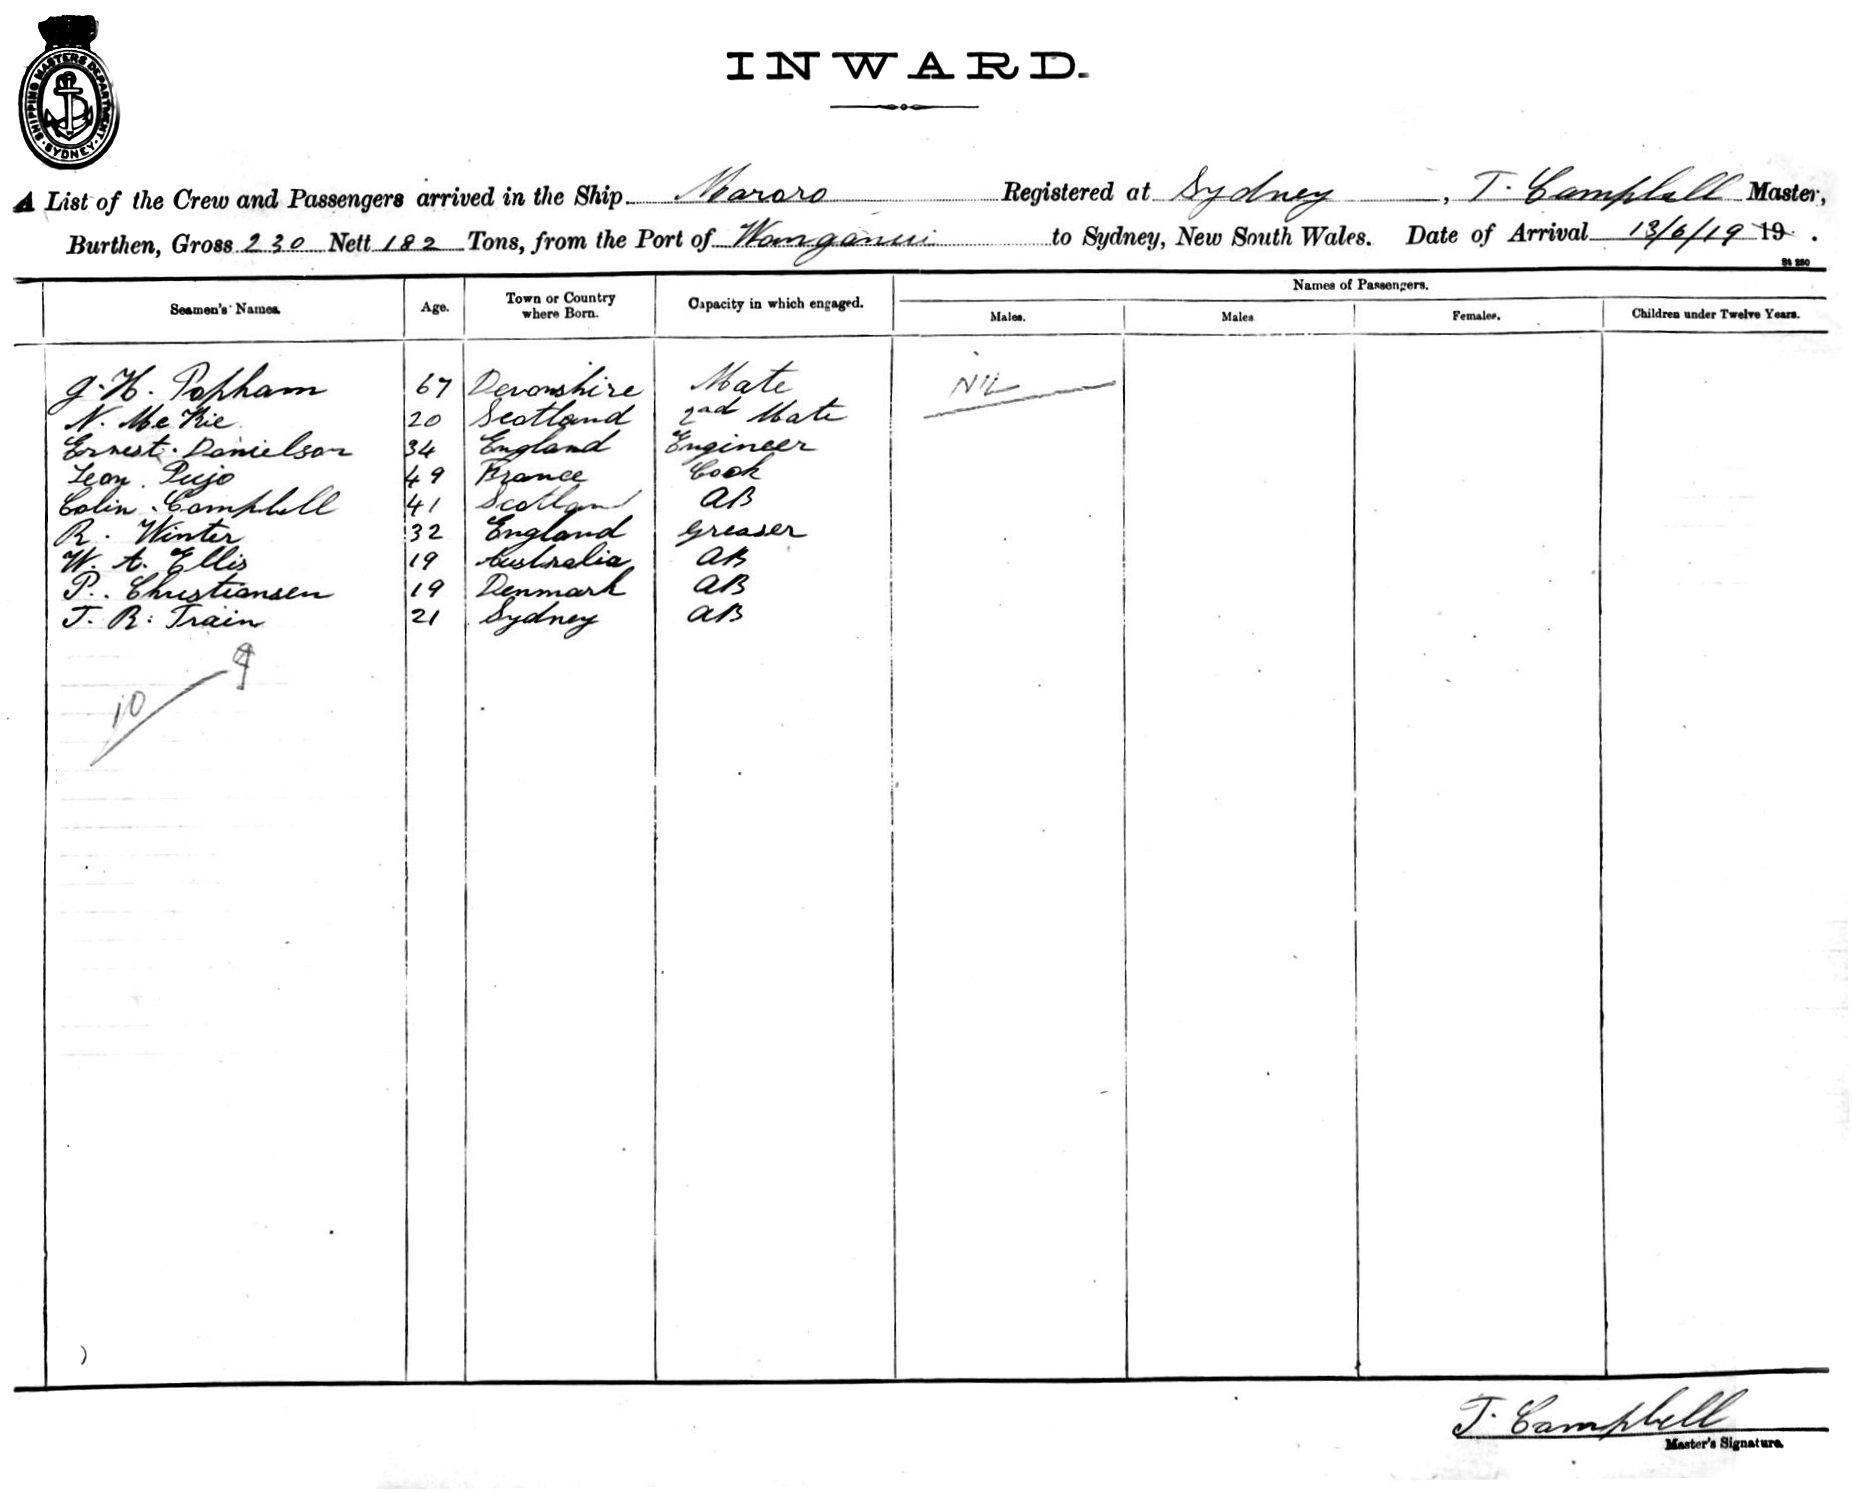 SHIPPING MASTERS DEPARTMENT
SYDNEY
INWARD.
A List of the Crew and Passengers arrived in the Ship Mararo Registered at Sydney, T. Campbell Master,
Burthen, Gross 230 Nett 182 Tons, from the Port of Wanganui to Sydney, New South Wales. Date of Arrival 13/6/19 19.
St 280
Seamen's Names. Age. Town or Country where Born. Capacity in which engaged. Names of Passengers.
Males. Males Females. Children under Twelve Years.
G. H. Popham 67 Devonshire Mate NIL
N. McKie 20 Scotland 2nd Mate
Ernest Danielson 34 England Engineer
Leon Pujo 49 France Cook
Colin Campbell 41 Scotland AB
R. Winter 32 England Greaser
W. A. Ellis 19 Australia AB
P. Christiansen 19 Denmark AB
T. R. Train 21 Sydney AB
9
10
T. Campbell
Master's Signature.